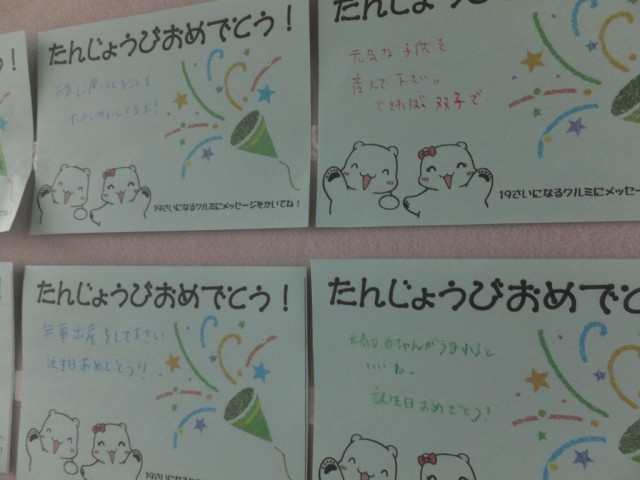 たんじょうびおめでとう！
ことを
19さいになるクルミにメッセージをかいてね！
たんじょうび
元気な子供を
産んで下さい。
できれば双子で
19さいになるクルミにメッセー
たんじょうびおめでとう！
無事出産をして下さい
誕生日おめでとう!!
たんじょうびおめでと
元気な赤ちゃんがうまれると
いいね。
誕生日おめでとう!